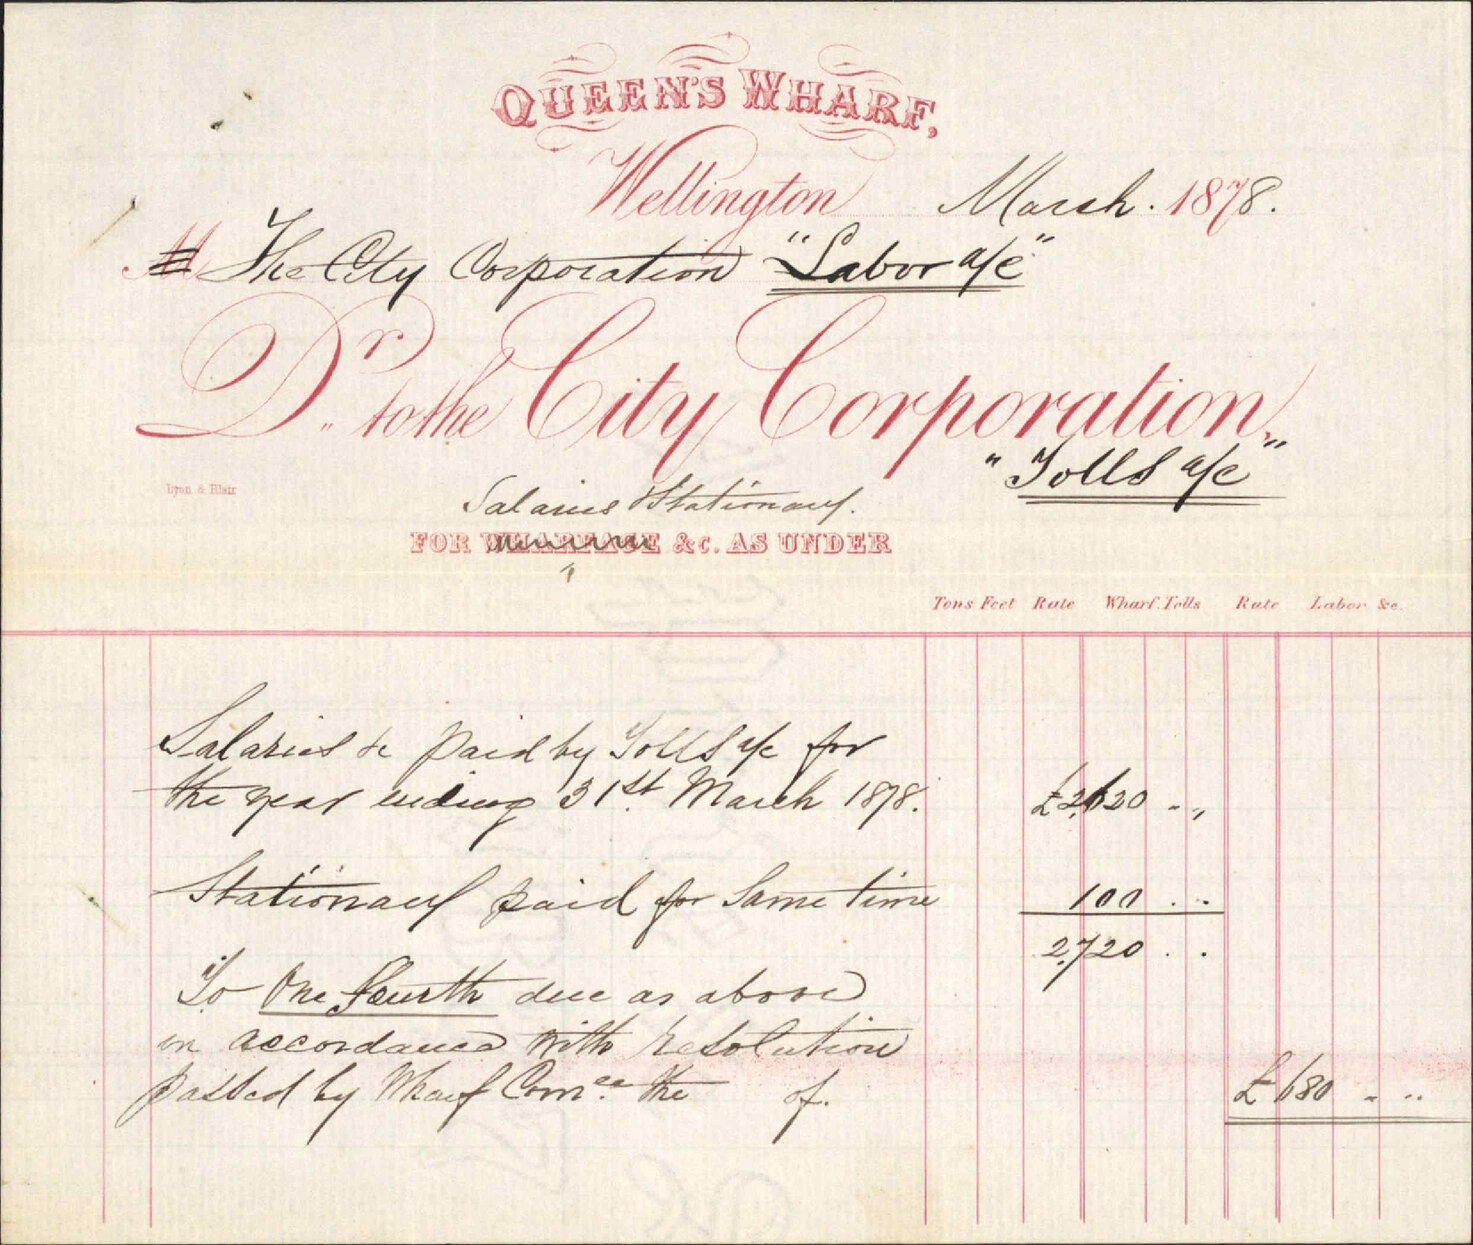 QUEEN'S WHARF,
Wellington March. 1878.
M The City Corporation "Labor a/c"
Dr. to the City Corporation,
"Tolls a/c"
Lyon & Blair
Salaries & Stationery.
FOR WHARFAGE &c. AS UNDER
Tons Feet Rate Wharf. Tolls Rate Labor &c.
Salaries &c paid by Tolls a/c for
the year ending 31st. March 1878. £2,620 " "
Stationary paid for Same time 100 " "
2,720 " "
To One Fourth due as above
in accordance with resolution
passed by Wharf Comee. the of. £680 " "